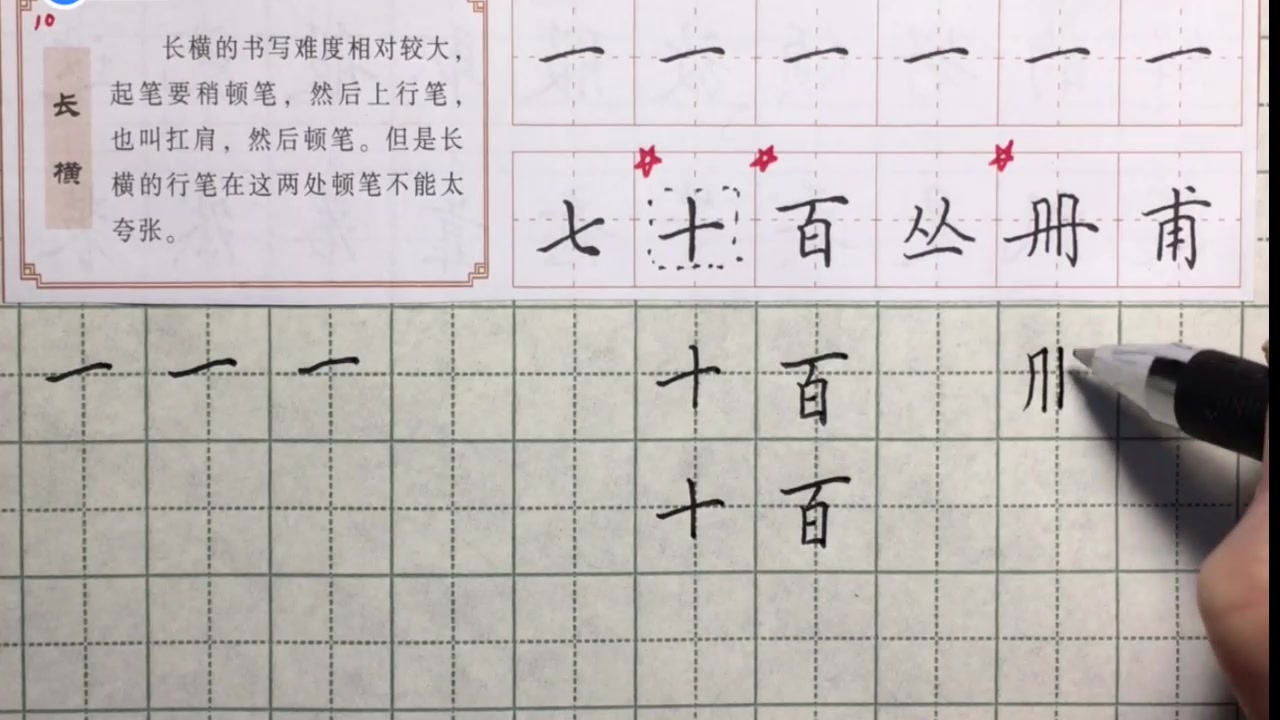 10
长横
长横的书写难度相对较大，
起笔要稍顿笔，然后上行笔，
也叫扛肩，然后顿笔。但是长
横的行笔在这两处顿笔不能太
夸张。
一 一 一 一 一 一
七 十 百 丛 册 甫
一 一 一 十 百
十 百